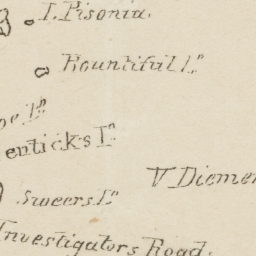 I. Pisonia.
Bountiful Iⁿ
enticks Iⁿ
V Diemen
Sweers Iⁿ
Investigators Road.